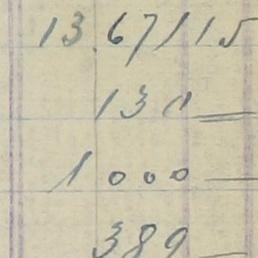 13.67/15
130 —
1000 —
389 —